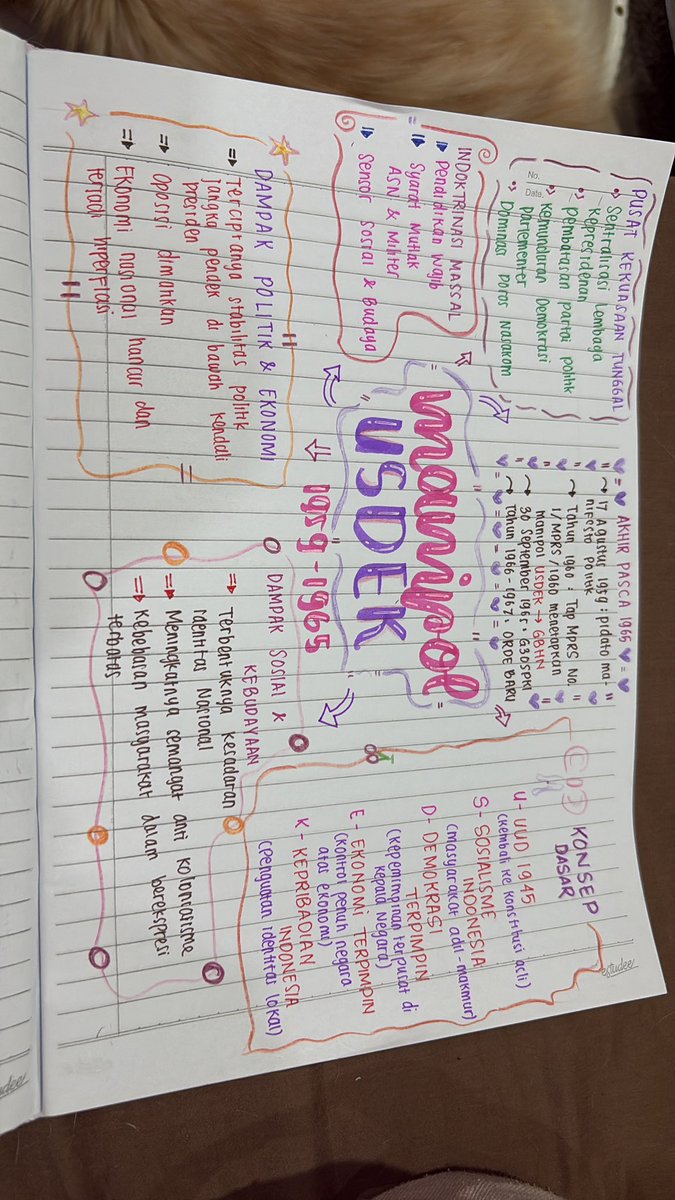 manipol
USDEK
⇒ 1959-1965
PUSAT KEKUASAAN TUNGGAL
Sentralisasi Lembaga
Kepresidenan
Pembatasan partai politik
Kemunduran Demokrasi
parlementer
Dominasi Poros Nasakom
No.
Date.
AKHIR PASCA 1965
→ 17 Agustus 1959 : pidato ma-
nifesto Politik
→ Tahun 1960 : Tap MPRS No.
1/MPRS/1960 menetapkan
Manipol USDEK → GBHN
→ 30 September 1965 : G30SPKI
→ Tahun 1966-1967 : ORDE BARU
KONSEP
DASAR
U - UUD 1945
(kembali ke konstitusi asli)
S - SOSIALISME
INDONESIA
(masyarakat adil-makmur)
D - DEMOKRASI
TERPIMPIN
(kepemimpinan terpusat di
kepala Negara)
E - EKONOMI TERPIMPIN
(kontrol penuh negara
atas ekonomi)
K - KEPRIBADIAN
INDONESIA
(penguatan identitas lokal)
INDOKTRINASI MASSAL
Pendidikan Wajib
Syarat Mutlak
ASN & Militer
Sensor Sosial & Budaya
DAMPAK POLITIK & EKONOMI
⇒ Terciptanya stabilitas politik
jangka pendek di bawah kendali
presiden
⇒ Oposisi dimatikan
⇒ Ekonomi nasional hancur dan
terjadi hiperflasi
DAMPAK SOSIAL &
KEBUDAYAAN
⇒ Terbentuknya kesadaran
identitas Nasional
⇒ Meningkatnya semangat anti kolonialisme
⇒ Kebebasan masyarakat dalam berekspresi
terbatas
estudee